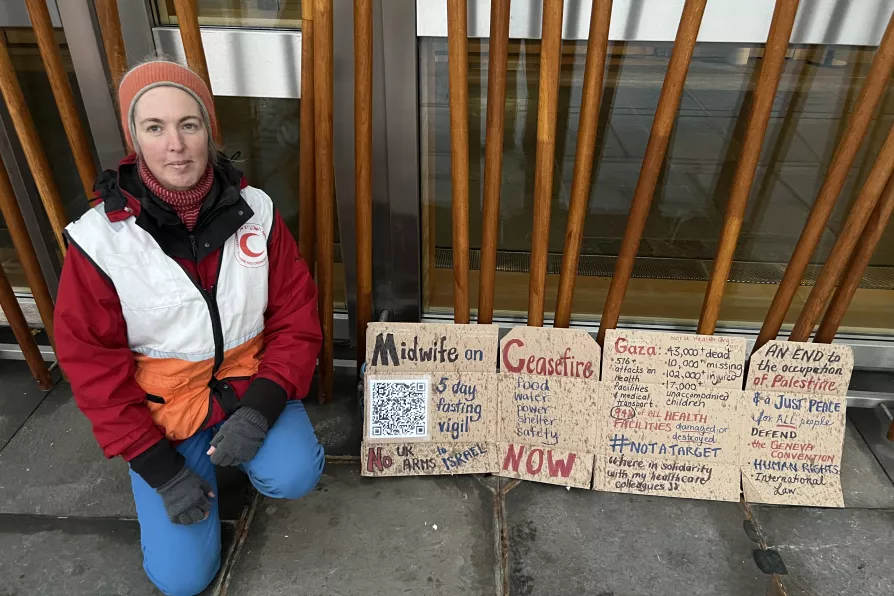 Midwife on
5 day
fasting
vigil
No UK
ARMS to ISRAEL
Ceasefire
Food
water
power
shelter
safety
NOW
World Health Org
Gaza: 43,000+ dead
576+ 10,000+ missing
attacks on 102,000+ injured
health
facilities 17,000+
& medical unaccompanied
transport. children
94% of all HEALTH
FACILITIES damaged or
destroyed
#NOTATARGET
where in solidarity
with my healthcare
colleagues
AN END to the
occupation
of Palestine
& a JUST PEACE
for ALL people
DEFEND
the GENEVA
CONVENTION
HUMAN RIGHTS
International
Law